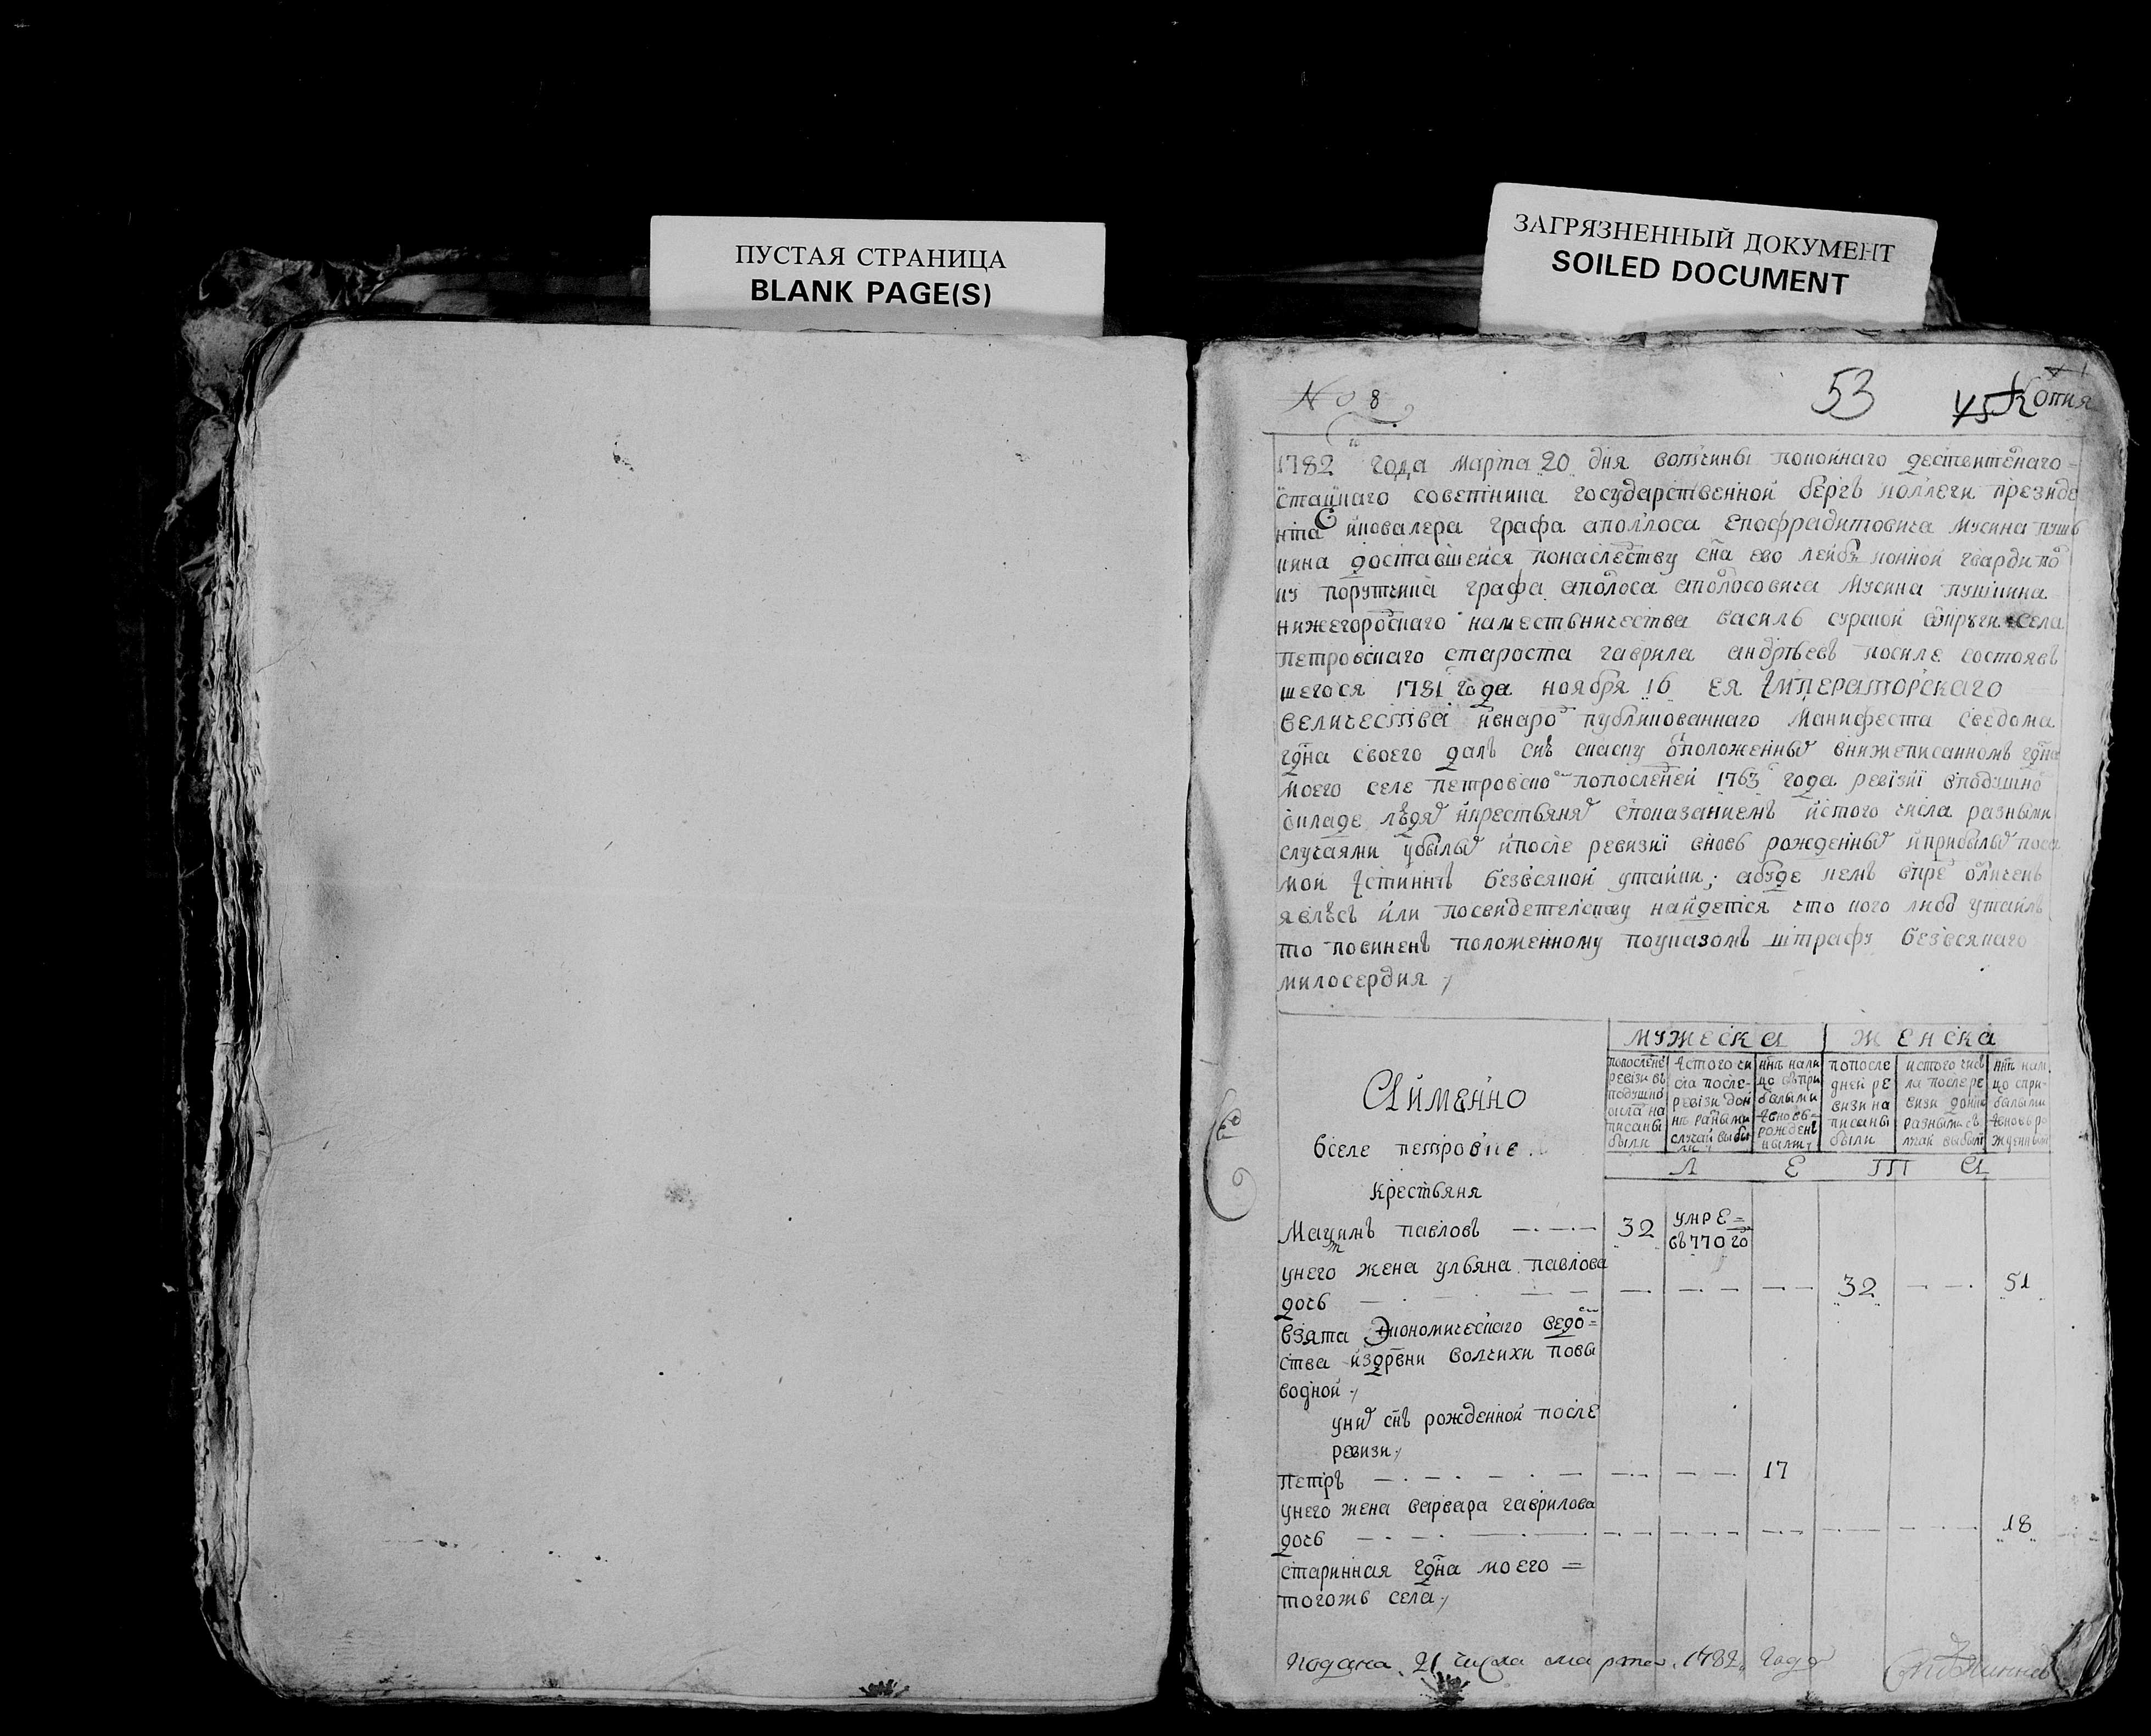 ПУСТАЯ СТРАНИЦА
BLANK PAGE(S)
ЗАГРЯЗНЕННЫЙ ДОКУМЕНТ
SOILED DOCUMENT
№ 8
53
45
Копия
1782 го года марта 20 дня вотчины покойнаго дествителнаго
статцкаго советника государственной бергъ коллеги президе
нта и ковалера графа аполлоса епофрадитовича мусина пушъ
кина доставшейся понаследству сна ево лейбъ конной гвардии по
ку порутчика графа аполоса аполосовича мусина пушкина
нижегородскаго наместъничества василь сурской округи села
петровскаго староста гаврила андрѣевъ после состояв
шегося 1781 года ноября 16 ея Императорскаго
величества ивнарод публикованнаго манифеста сведома
гдна своего далъ сию скаску о положенных внижеписанномъ гдна
моего селе петровском попоследней 1763 года ревизии вподушном
окладе людях икрестьянях спопазаниемъ истого числа разными
случаями убылых ипосле ревизиї вновь рожденных иприбылых поса
мой истиннѣ безвсякой утайки; абуде
явлюсь или посвидетелству найдется что кого либо утаилъ
то повиненъ положенному поуказомъ штрафу безвсякаго
милосердия
МУЖЕСКА ЖЕНСКА
Аименно
попоследне ревизи въ подушно окла написаны были
истого числа после ревизи донне разными случаи выбыли
ннѣ налицо сприбылыми ивновь рожденными
попоследней ревизи написаны были
истого числа после ревизи донне разными случаи выбыли
ннѣ налицо сприбылыми ивновь рожденными
Л Е Т А
вселе петровске
Крестьяня
Макимъ павловъ 32 умре въ 770 го
унего жена ульяна павлова
дочь 32 51
взята Экономическаго ведом
ства издрвни волчихи повы
водной
уних снъ рожденной после
ревизи
петръ 17
унего жена варвара гаврилова
дочь 18
старинная гдна моего
тогожъ села
Подана 21 числа марта 1782 году